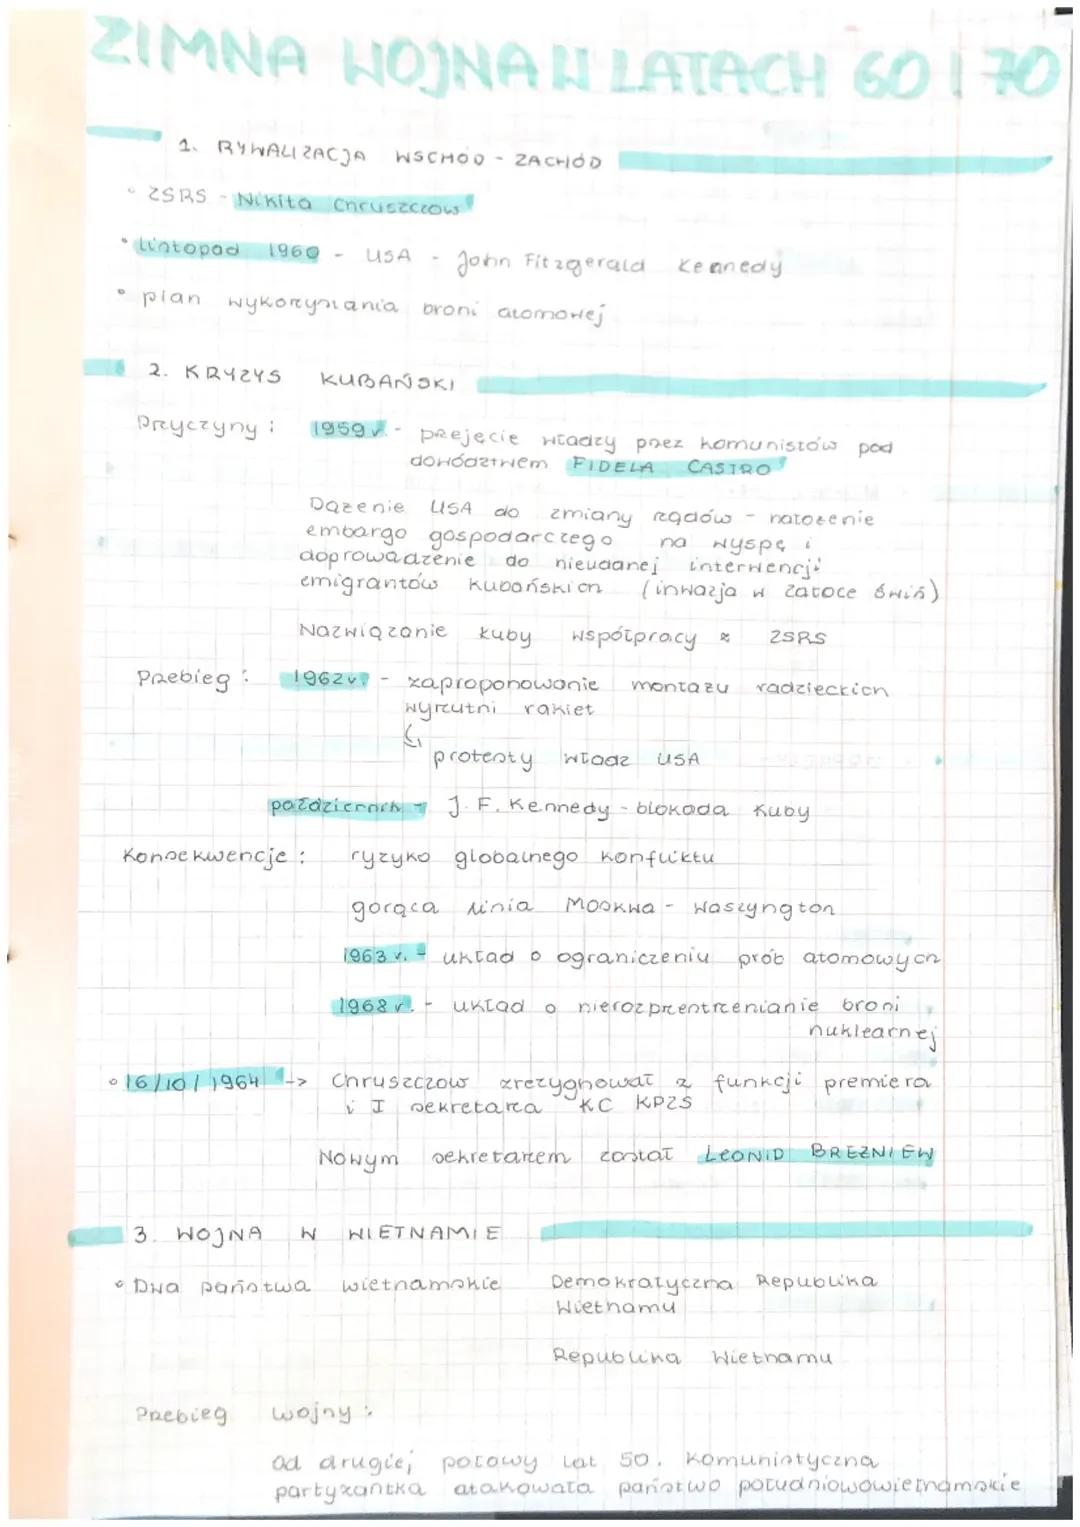 ZIMNA WOJNA W LATACH 60 I 70
1. RYWALIZACJA WSCHÓD - ZACHÓD
• ZSRS - Nikita Chruszczow
• listopad 1960 - USA - John Fitzgerald Kennedy
• plan wykorzystania broni atomowej
2. KRYZYS KUBAŃSKI
Przyczyny : 1959 r. - przejęcie władzy przez komunistów pod
dowództwem FIDELA CASTRO
Dążenie USA do zmiany rządów - nałożenie
embargo gospodarczego na wyspę i
doprowadzenie do nieudanej interwencji
emigrantów kubańskich (inwazja w zatoce świń)
Nazwiązanie Kuby współpracy z ZSRS
Przebieg : 1962 r. - zaproponowanie montażu radzieckich
wyrzutni rakiet
↳ protesty władz USA
październik - J. F. Kennedy - blokada Kuby
Konsekwencje : ryzyko globalnego konfliktu
gorąca linia Moskwa - Waszyngton
1963 r. - układ o ograniczeniu prób atomowych
1968 r. - układ o nierozprzentrzenianie broni
nuklearnej
• 16/10/1964 -> Chruszczow zrezygnował z funkcji premiera
i I sekretarza KC KPZS
Nowym sekretarzem został LEONID BREŻNIEW
3. WOJNA W WIETNAMIE
• Dwa państwa wietnamskie Demokratyczna Republika
Wietnamu
Republika Wietnamu
Przebieg wojny :
Od drugiej połowy lat 50. komunistyczna
partyzantka atakowała państwo południowowietnamskie